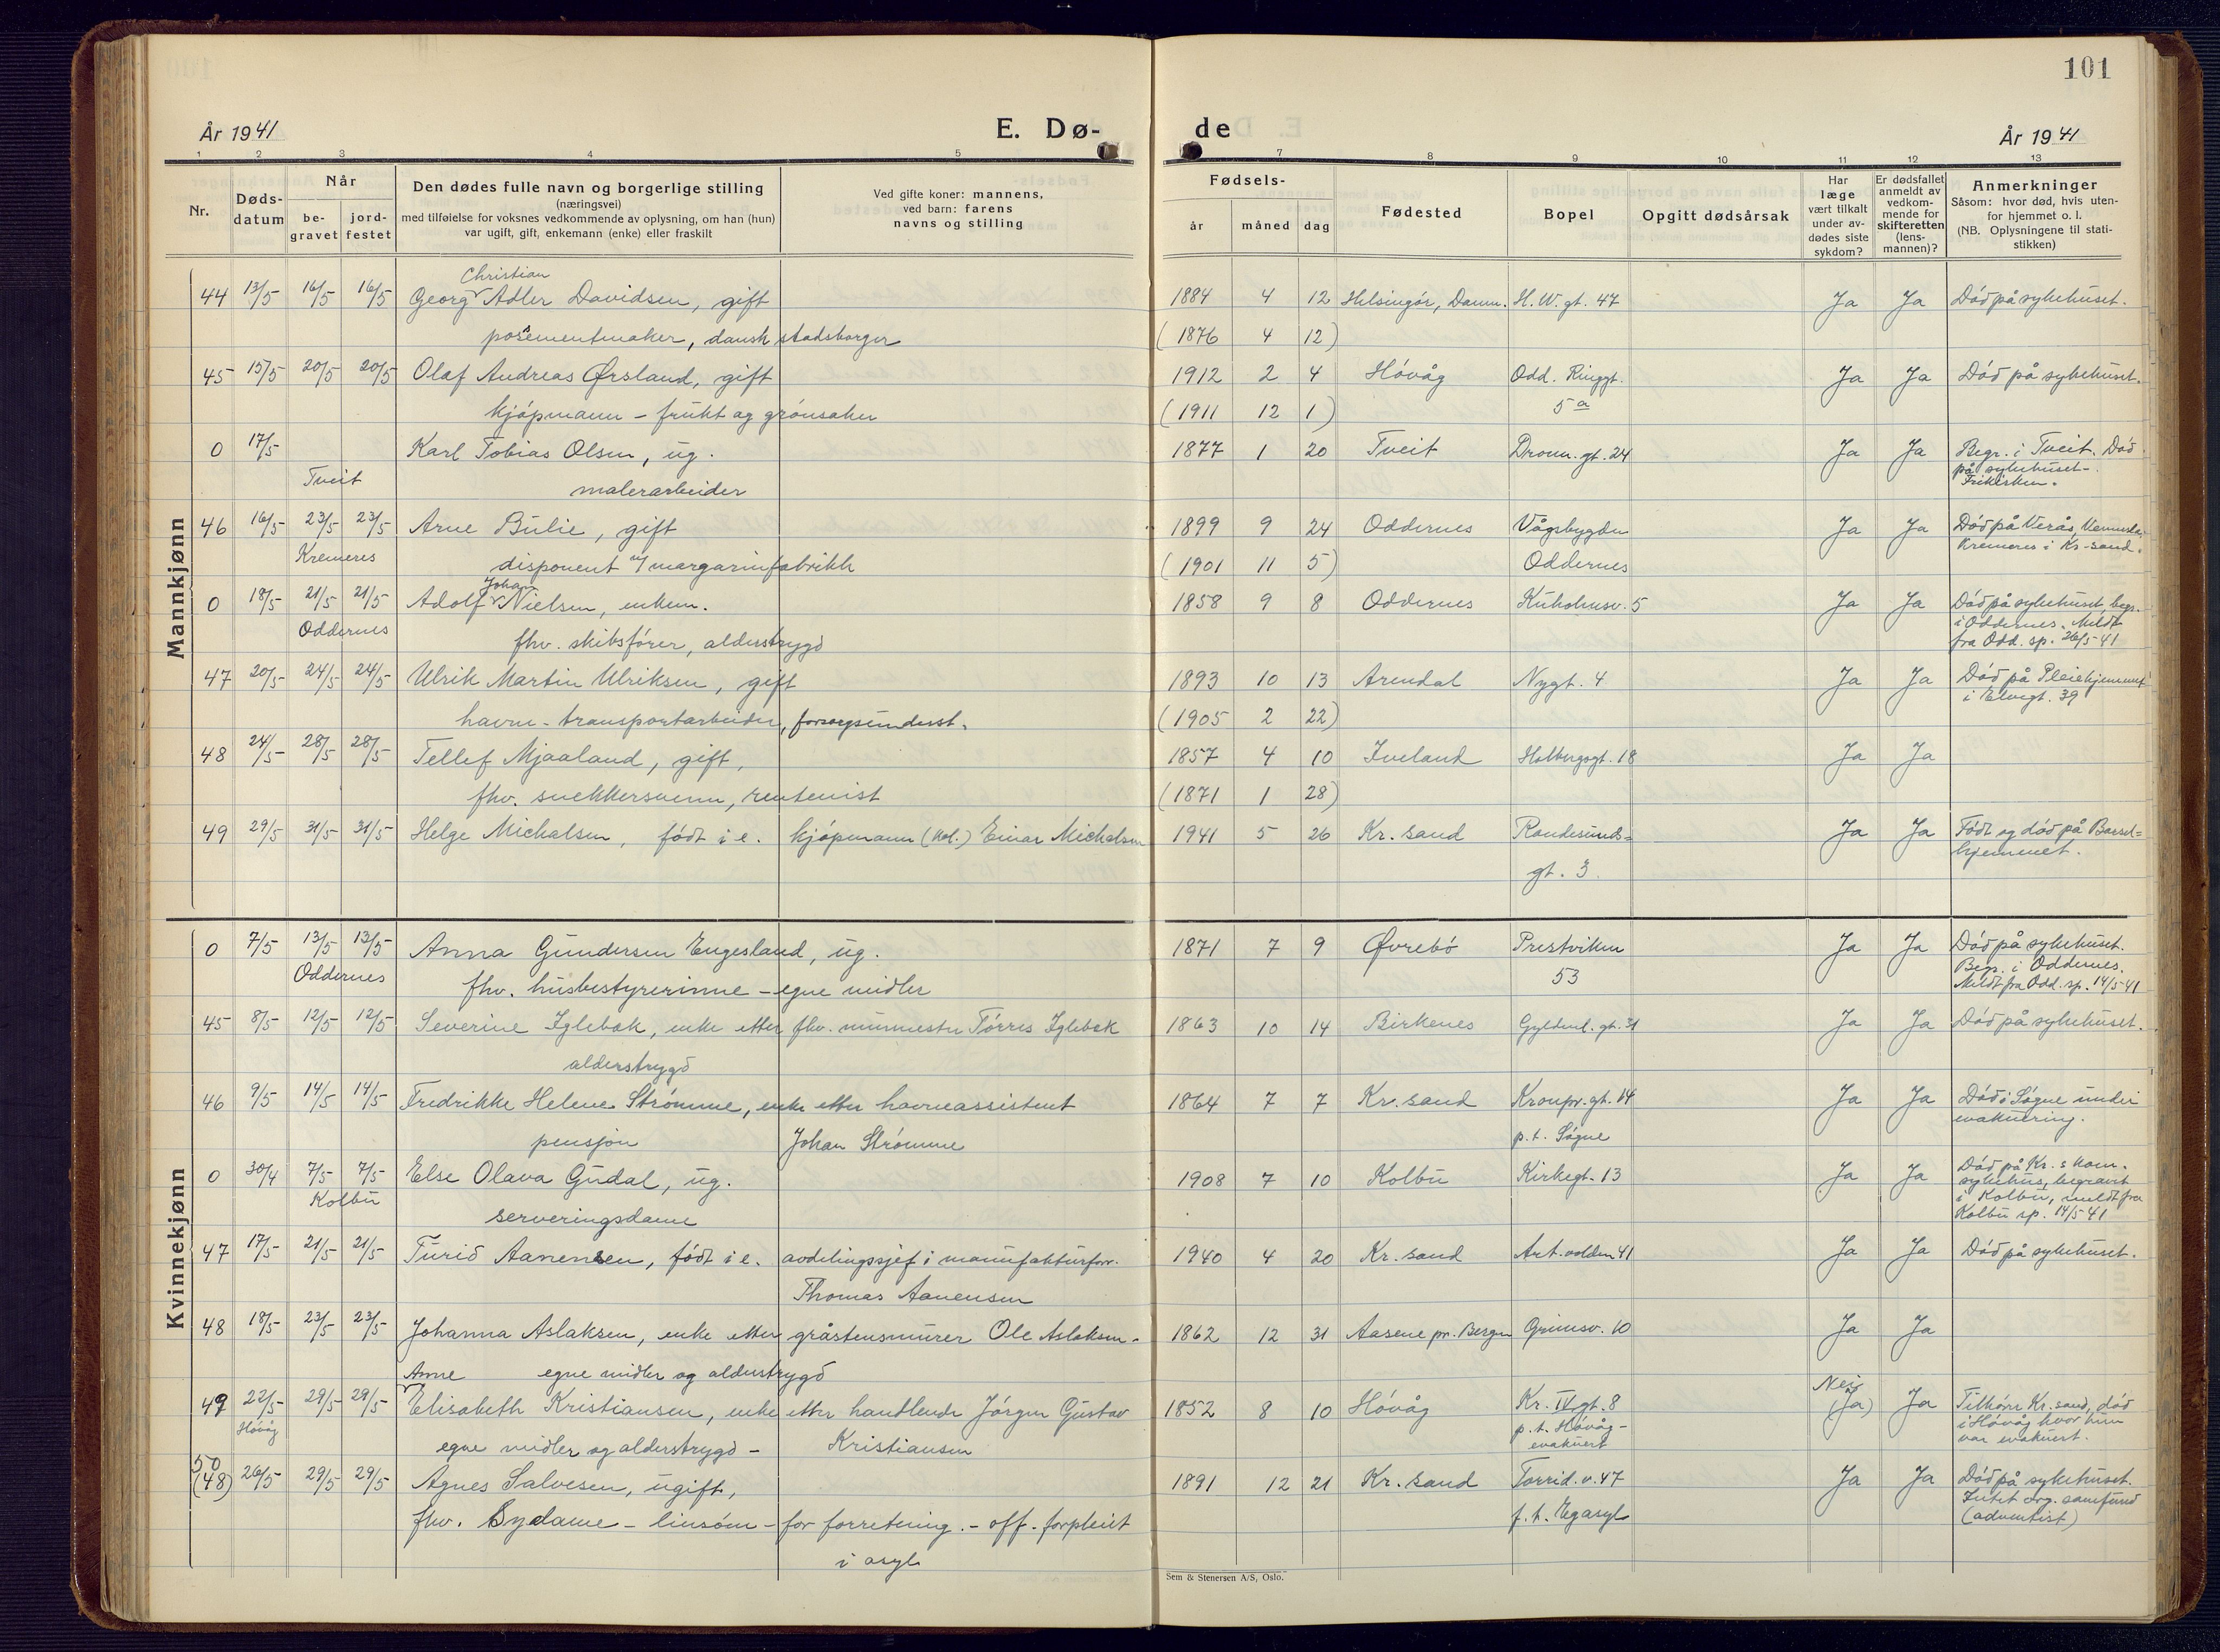 101
År 1941
E. Dø-
de
År 1941
1 2 3 4 5 7 8 9 10 11 12 13
Nr.
Døds-
datum
Når
be-
gravet
jord-
festet
Den dødes fulle navn og borgerlige stilling
(næringsvei)
med tilføielse for voksnes vedkommende av oplysning, om han (hun)
var ugift, gift, enkemann (enke) eller fraskilt
Ved gifte koner: mannens,
ved barn: farens
navns og stilling
Fødsels-
år måned dag
Fødested
Bopel
Opgitt dødsårsak
Har
læge
vært tilkalt
under av-
dødes siste
sykdom?
Er dødsfallet
anmeldt av
vedkom-
mende for
skifteretten
(lens-
mannen)?
Anmerkninger
Såsom: hvor død, hvis uten-
for hjemmet o. l.
(NB. Oplysningene til stati-
stikken)
Mannkjønn
Christian
44 13/5 16/5 16/5 Georg Adler Davidsen, gift 1884 4 12 Helsingör, Danm. H.W.gt. 47 Ja Ja Död på sykehuset.
posementmaker, dansk stadsborger (1876 4 12)
45 15/5 20/5 20/5 Olaf Andreas Ørsland, gift 1912 2 4 Hövåg Odd. Ringgt. Ja Ja Död på sykehuset.
kjöpmann - frukt og grönsaker (1911 12 1) 5a
0 17/5 Karl Tobias Olsen, ug. 1877 1 20 Tveit Dronn. gt. 24 Ja Ja Begr. i Tveit. Död
Tveit malerarbeider på sykehuset-
Frikirken.
46 16/5 23/5 23/5 Arne Bulie, gift 1899 9 24 Oddernes Vågsbygden Ja Ja Död på Verås, Vennesla.
Kremeres disponent v/ margarinfabrikk (1901 11 5) Oddernes Kremeres i Kr-sand.
Johan
0 18/5 21/5 21/5 Adolf Nielsen, enkem. 1858 9 8 Oddernes Kuholmsv. 5 Ja Ja Död på sykehuset, begr.
Oddernes fhv. skibsförer, alderstrygd i Oddernes. Meldt
fra Odd. sp. 26/5-41
47 20/5 24/5 24/5 Ulrik Martin Ulriksen, gift 1893 10 13 Arendal Nygt. 4 Ja Ja Död på Pleiehjemmet
havne-transportarbeider, forsorgsunderst. (1905 2 22) i Elvegt. 39
48 24/5 28/5 28/5 Tellef Mjaaland, gift, 1857 4 10 Iveland Holbergsgt. 18 Ja Ja
fhv. snekkersvenn, rentenist (1871 1 28)
49 29/5 31/5 31/5 Helge Michalsen, födt i e. kjöpmann (kol.) Einar Michalsen 1941 5 26 Kr. sand Randesunds- Ja Ja Födt og död på Barsel-
gt. 3. hjemmet.
Kvinnekjønn
0 7/5 13/5 13/5 Anna Gundersen Engesland, ug. 1871 7 9 Øvrebö Prestviken Ja Ja Död på sykehuset.
Oddernes fhv. husbestyrerinne - egne midler 53 Begr. i Oddernes.
Meldt fra Odd. sp. 14/5-41
45 8/5 12/5 12/5 Severine Iglebæk, enke etter fhv. murmester Törres Iglebæk 1863 10 14 Birkenes Gyldenl. gt. 31 Ja Ja Död på sykehuset.
alderstrygd
46 9/5 14/5 14/5 Fredrikke Helene Strömme, enke etter havneassistent 1864 7 7 Kr. sand Kronpr. gt. 14 Ja Ja Död i Sögne under
pensjon Johan Strömme p.t. Sögne evakuering.
0 30/4 7/5 7/5 Else Olava Gudal, ug. 1908 7 10 Kolbu Kirkegt. 13 Ja Ja Död på Kr. s kom.
Kolbu serveringsdame sykehus, begravet
i Kolbu, meldt fra
Kolbu sp. 14/5 41
47 17/5 21/5 21/5 Turid Aanensen, födt i e. avdelingssjef i manufakturforr. 1940 4 20 Kr. sand Art. volden 41 Ja Ja Död på sykehuset.
Thomas Aanensen
48 18/5 23/5 23/5 Johanna Aslaksen, enke etter gråstensmurer Ole Aslaksen. 1862 12 31 Aasene pr. Bergen Grimsv. 10 Ja Ja
Anne egne midler og alderstrygd
49 22/5 29/5 29/5 Elisabeth Kristiansen, enke etter handlende Jörgen Gustav 1852 8 10 Hövåg Kr. IV gt. 8 Nei (Ja) Ja Tilhörer Kr. sand, död
Hövåg egne midler og alderstrygd - Kristiansen p.t. Hövåg - i Hövåg hvor hun
evakuert var evakuert.
50
(48) 26/5 29/5 29/5 Agnes Salvesen, ugift, 1891 12 21 Kr. sand Torrid. v. 47 Ja Ja Död på sykehuset.
fhv. Sydame - linsöm - for forretning. - off. forpleiet f.t. Egasyl Intet org. samfund
i asyl (adventist)
Sem & Stenersen A/S, Oslo.